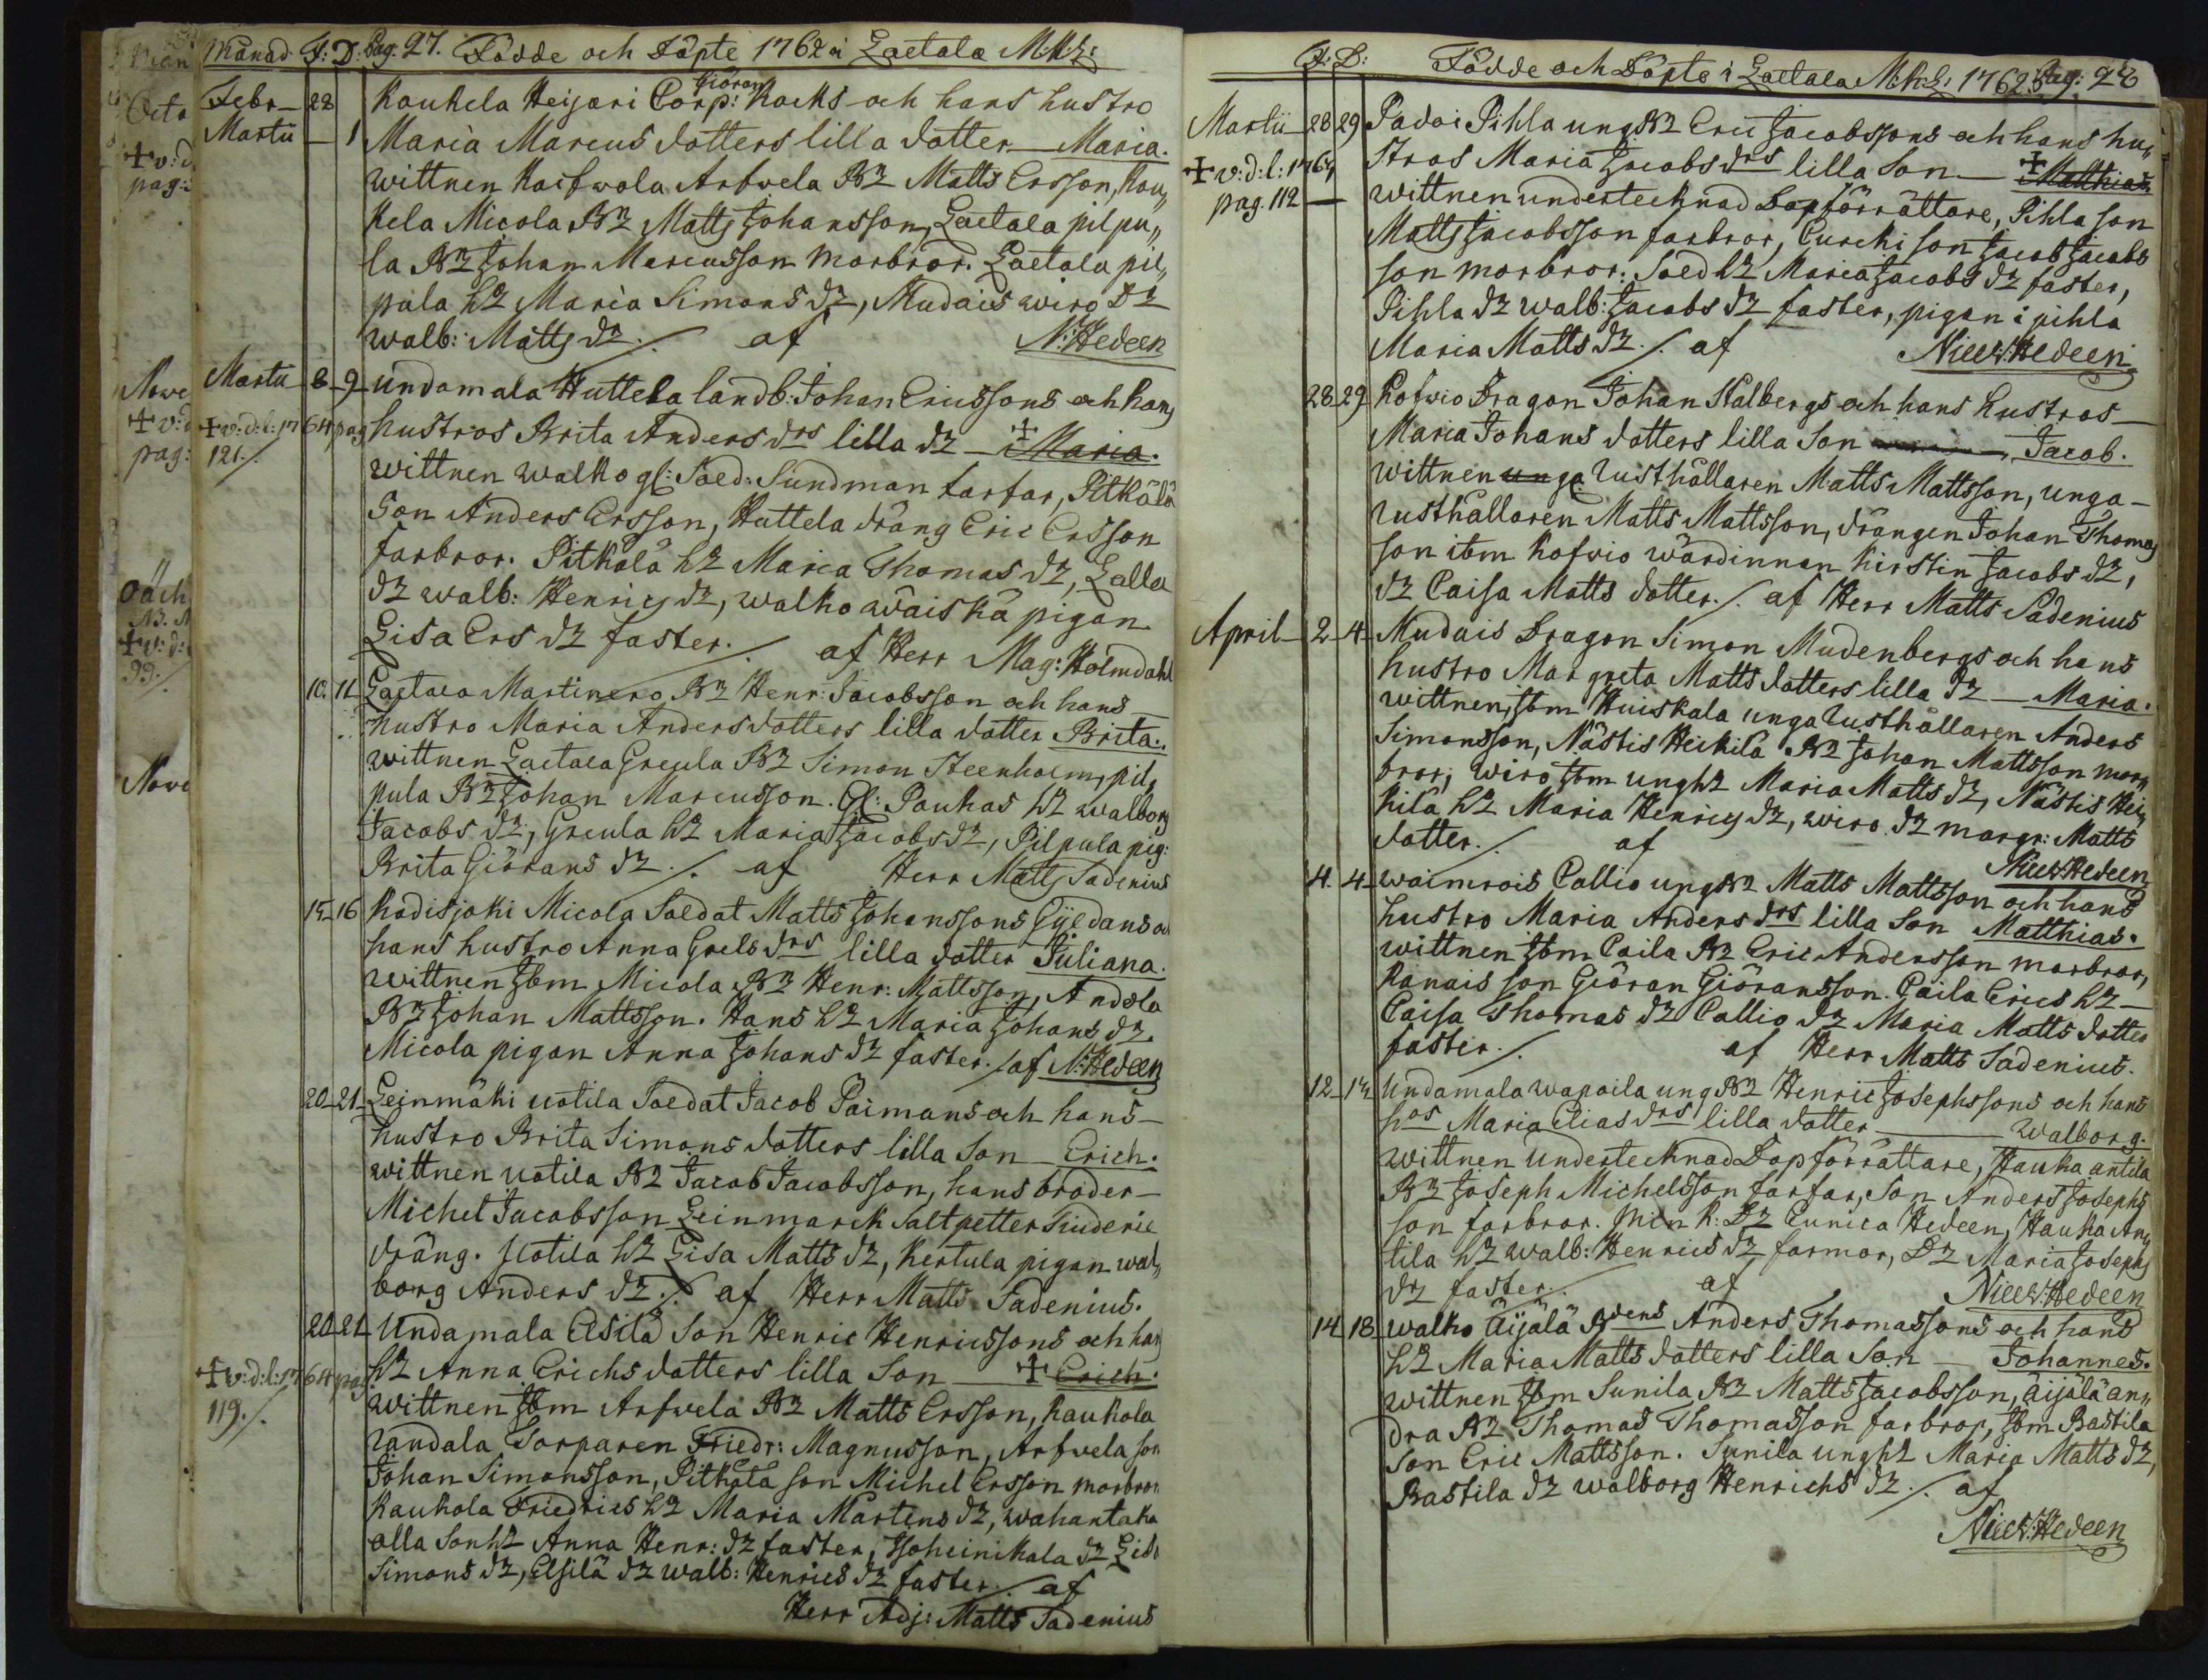 Månad. F: D: Pag. 27. Födde och Döpte 1762 i Laetala M:K:L:
Giöran
Febr_ 28 Kaukela Heijari Corp: Kacks och hans hustro
Martii _ 1 Maria Marcus dotters lilla dotter _ Maria.
wittnen Kaifwola Arfwela Bz Matts Ersson, Kau„
kela Micola Bz Matts Johansson, Laetala pilpu„
la Bz Johan Marcusson morbror. Laetala pil„
pula hz Maria Simons dz, Mudais wiro Dz
walb: Matts dz ./. af N: Hedeen
Martii 8 9 Undamala Huttela landb: Johan Ericssons och hans
+ v:d:l: 1764 pag hustros Brita Anders drs lilla dz _ + Maria.
121./. wittnen walko gl: Soed: Sundman farfar, Pitkälä
Son Anders Ersson, Huttela dräng Eric Ersson
farbror. Pitkälä hz Maria Thomas dz, Lalla
dz walb: Henrics dz, walko wäiskä pigan
Lisa Ers dz faster. ./. af Herr Mag: Holmdahl
10. 11 Laetala Martinero Bz Henr: Jacobsson och hans
hustro Maria Anders dotters lilla dotter Brita.
wittnen Laetala Greula Bz Simon Steenholm, pil„
pula Bz Johan Marcusson. Gl: Paukas hz walborg
Jacobs dz, Greula hz Maria Jacobs dz, Pilpula pig:
Brita Giörans dz ./. af Herr Matts Sadenius
15 16 Kodisjoki Micola Soldat Matts Johanssons Gyldans och
hans hustro Anna Grels drs lilla dotter Juliana.
wittnen Ibm Micola Bz Henr: Mattsson, Andela
Bz Johan Mattsson. Hans hz Maria Johans dz.
Micola pigan Anna Johans dz faster ./. af N: Hedeen
20 21 Leinmäki uotila Soldat Jacob Paimans och hans
hustro Brita Simons dotters lilla Son _ Erich.
wittnen uotila Bz Jacob Jacobsson, hans broder
Michel Jacobsson Leinmarck Saltpetter Siuderie
dräng. Uotila hz Lisa Matts dz, Kertula pigan wal„
borg Anders dz ./. af Herr Matts Sadenius.
20 21 Undamala Elsilä Son Henric Henricssons och hans
+ v:d:l: 1764 pag hz Anna Erichs dotters lilla Son + Erich.
119./. wittnen Ibm Arfwela Bz Matts Ersson, Kaukola
Randala Torparen Friedr: Magnusson, Arfwela son
Johan Simonsson, Pitkälä son Michel Ersson morbror
Kaukola Friedrics hz Maria Martens dz, wahantaka
alla Son hz Anna Henr: dz faster, Isoheinikala dz Lisa
Simons dz, Elsilä dz walb: Henrics dz faster ./. af
Herr Adj: Matts Sadenius
F: D: Födde och Döpte i Laetala M:K:L: 1762. Pag: 28
Martii 28 29 Padoi Pihla ung Bz Eric Jacobssons och hans hu„
+ v:d:l: 1764 stros Maria Jacobs drs lilla Son _ + Matthias
pag. 112 wittnen undertecknad Dopförrättare, Pihla son
Matts Jacobsson farbror, Curcki son Jacob Jacobs
son morbror. Soed hz Maria Jacobs dz faster,
Pihla dz walb: Jacobs dz faster, pigan i pihla
Maria Matts dz ./. af Nicls: Hedeen
28 29 Kofwio Dragon Johan Stalbergs och hans hustros
Maria Johans dotters lilla Son _ Jacob.
wittnen unga Rusthållaren Matts Mattsson, unga
Rusthållaren Matts Mattsson, drängen Johan Thomas
son ibm Kofwio wärdinnan Kirstin Jacobs dz,
dz Caisa Matts dotter ./. af Herr Matts Sadenius
April 2 4 Mudais Dragon Simon Mudenbergs och hans
hustro Margreta Matts dotters lilla dz _ Maria.
wittnen, Ibm Huiskala unga Rusthållaren Anders
Simonsson, Nästis Heikilä Bz Johan Mattsson mor„
bror; wiro Ibm ung hz Maria Matts dz, Nästis Hei„
kilä hz Maria Henrics dz, wiro dz margr: Matts
dotter ./. af Nicls: Hedeen
4. 4 waimrois Callio ung Bz Matts Mattsson och hans
hustro Maria Anders drs lilla Son Matthias.
wittnen Ibm Caila Bz Eric Andersson morbror,
Kanais son Giöran Giöransson. Caila Erics hz
Caisa Thomas dz Callio dz Maria Matts dotter
faster ./. af Herr Matts Sadenius.
12 13 Undamala wapaila ung Bz Henric Josephssons och hans
hos Maria Elias drs lilla dotter _ Walborg.
wittnen undertecknad Dopförrättare, Hauka antila
Bz Joseph Michelsson farfar, Son Anders Josephs
son farbror. Min K: Dz Eunica Hedeen, Hauka An„
tila hz walb: Henrics dz farmor, Dz Maria Josephs
dz faster ./. af Nicls: Hedeen
14 18 walko Äijälä Bdens Anders Thomassons och hans
hz Maria Matts dotters lilla Son _ Johannes.
wittnen Ibm Sunila Bz Matts Jacobsson, äijälä an„
dra Bz Thomas Thomasson farbror, Ibm Bastila
Son Eric Mattsson. Sunila ung hz Maria Matts dz,
Bastila dz walborg Henrichs dz ./. af
Nicls: Hedeen